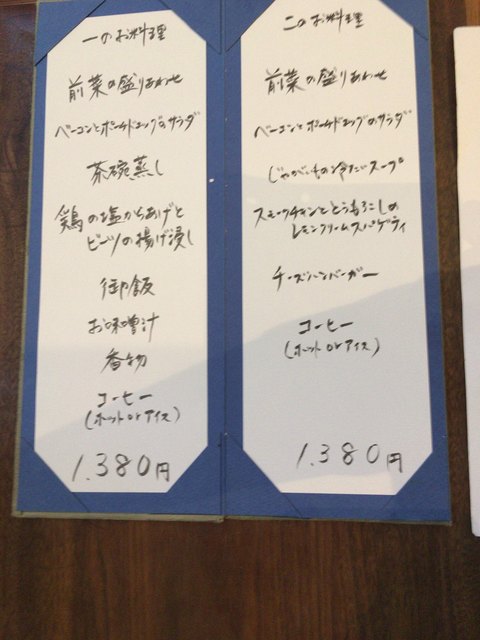 一のお料理
前菜の盛りあわせ
ベーコンとポーチドエッグのサラダ
茶碗蒸し
鶏の塩からあげと
ビーツの揚げ浸し
御飯
お味噌汁
香物
コーヒー
(ホット or アイス)
1.380円
二のお料理
前菜の盛りあわせ
ベーコンとポーチドエッグのサラダ
じゃがいもの冷たいスープ
スモークチキンととうもろこしの
レモンクリームスパゲティ
チーズハンバーガー
コーヒー
(ホット or アイス)
1.380円